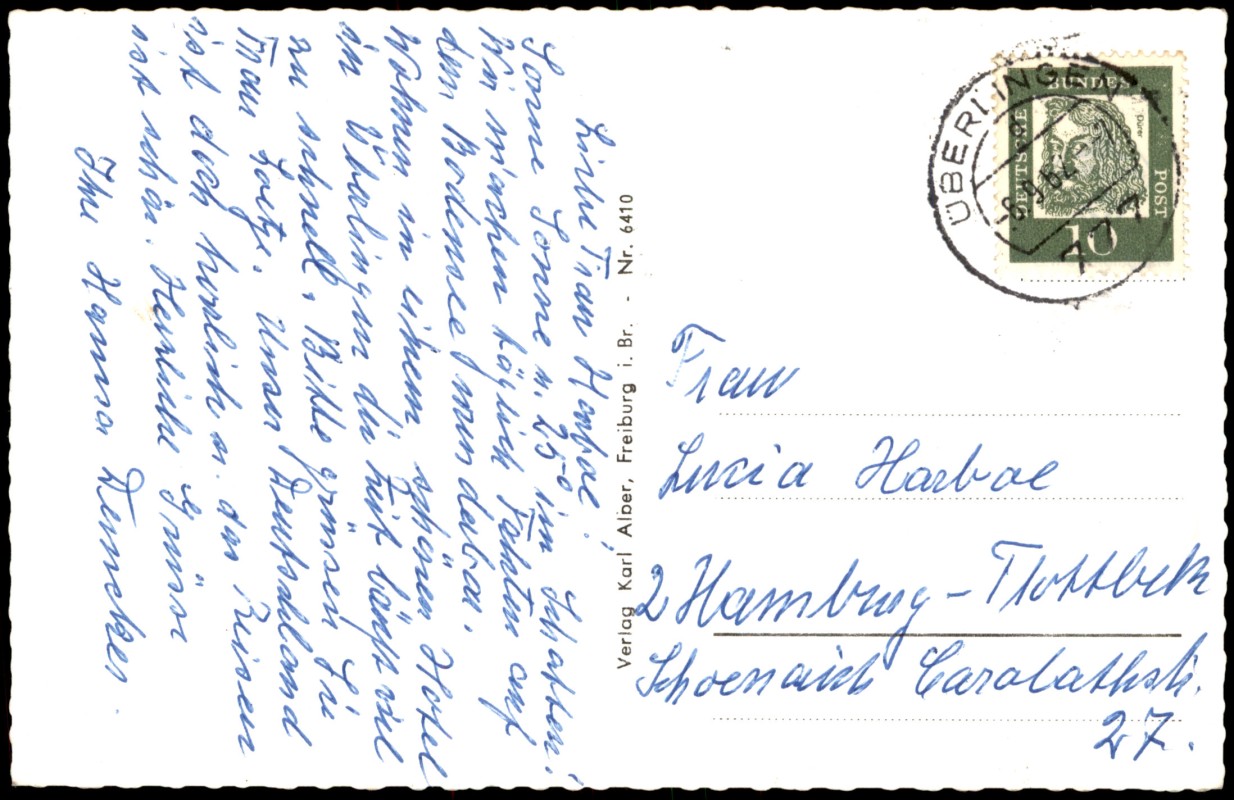 Liebe Frau Harboe!
Sonne Sonne u. 25° im Schatten!
Wir machen täglich Fahrten auf
dem Bodensee, wunderbar.
Wohnen in einem schönen Hotel
in Überlingen die Zeit läuft viel
zu schnell. Bitte grüssen Sie
Frau Goetze. Unser Deutschland
ist doch herrlich u. das Reisen
ist schön. Herzliche Grüsse
Ihre Hanna
Verlag Karl Alber, Freiburg i. Br. - Nr. 6410
ÜBERLINGEN
DEUTSCHE BUNDES POST
Dürer
10
Frau
Lucia Harboe
2 Hamburg - Flottbek
Schoenaich Carolathstr.
27.